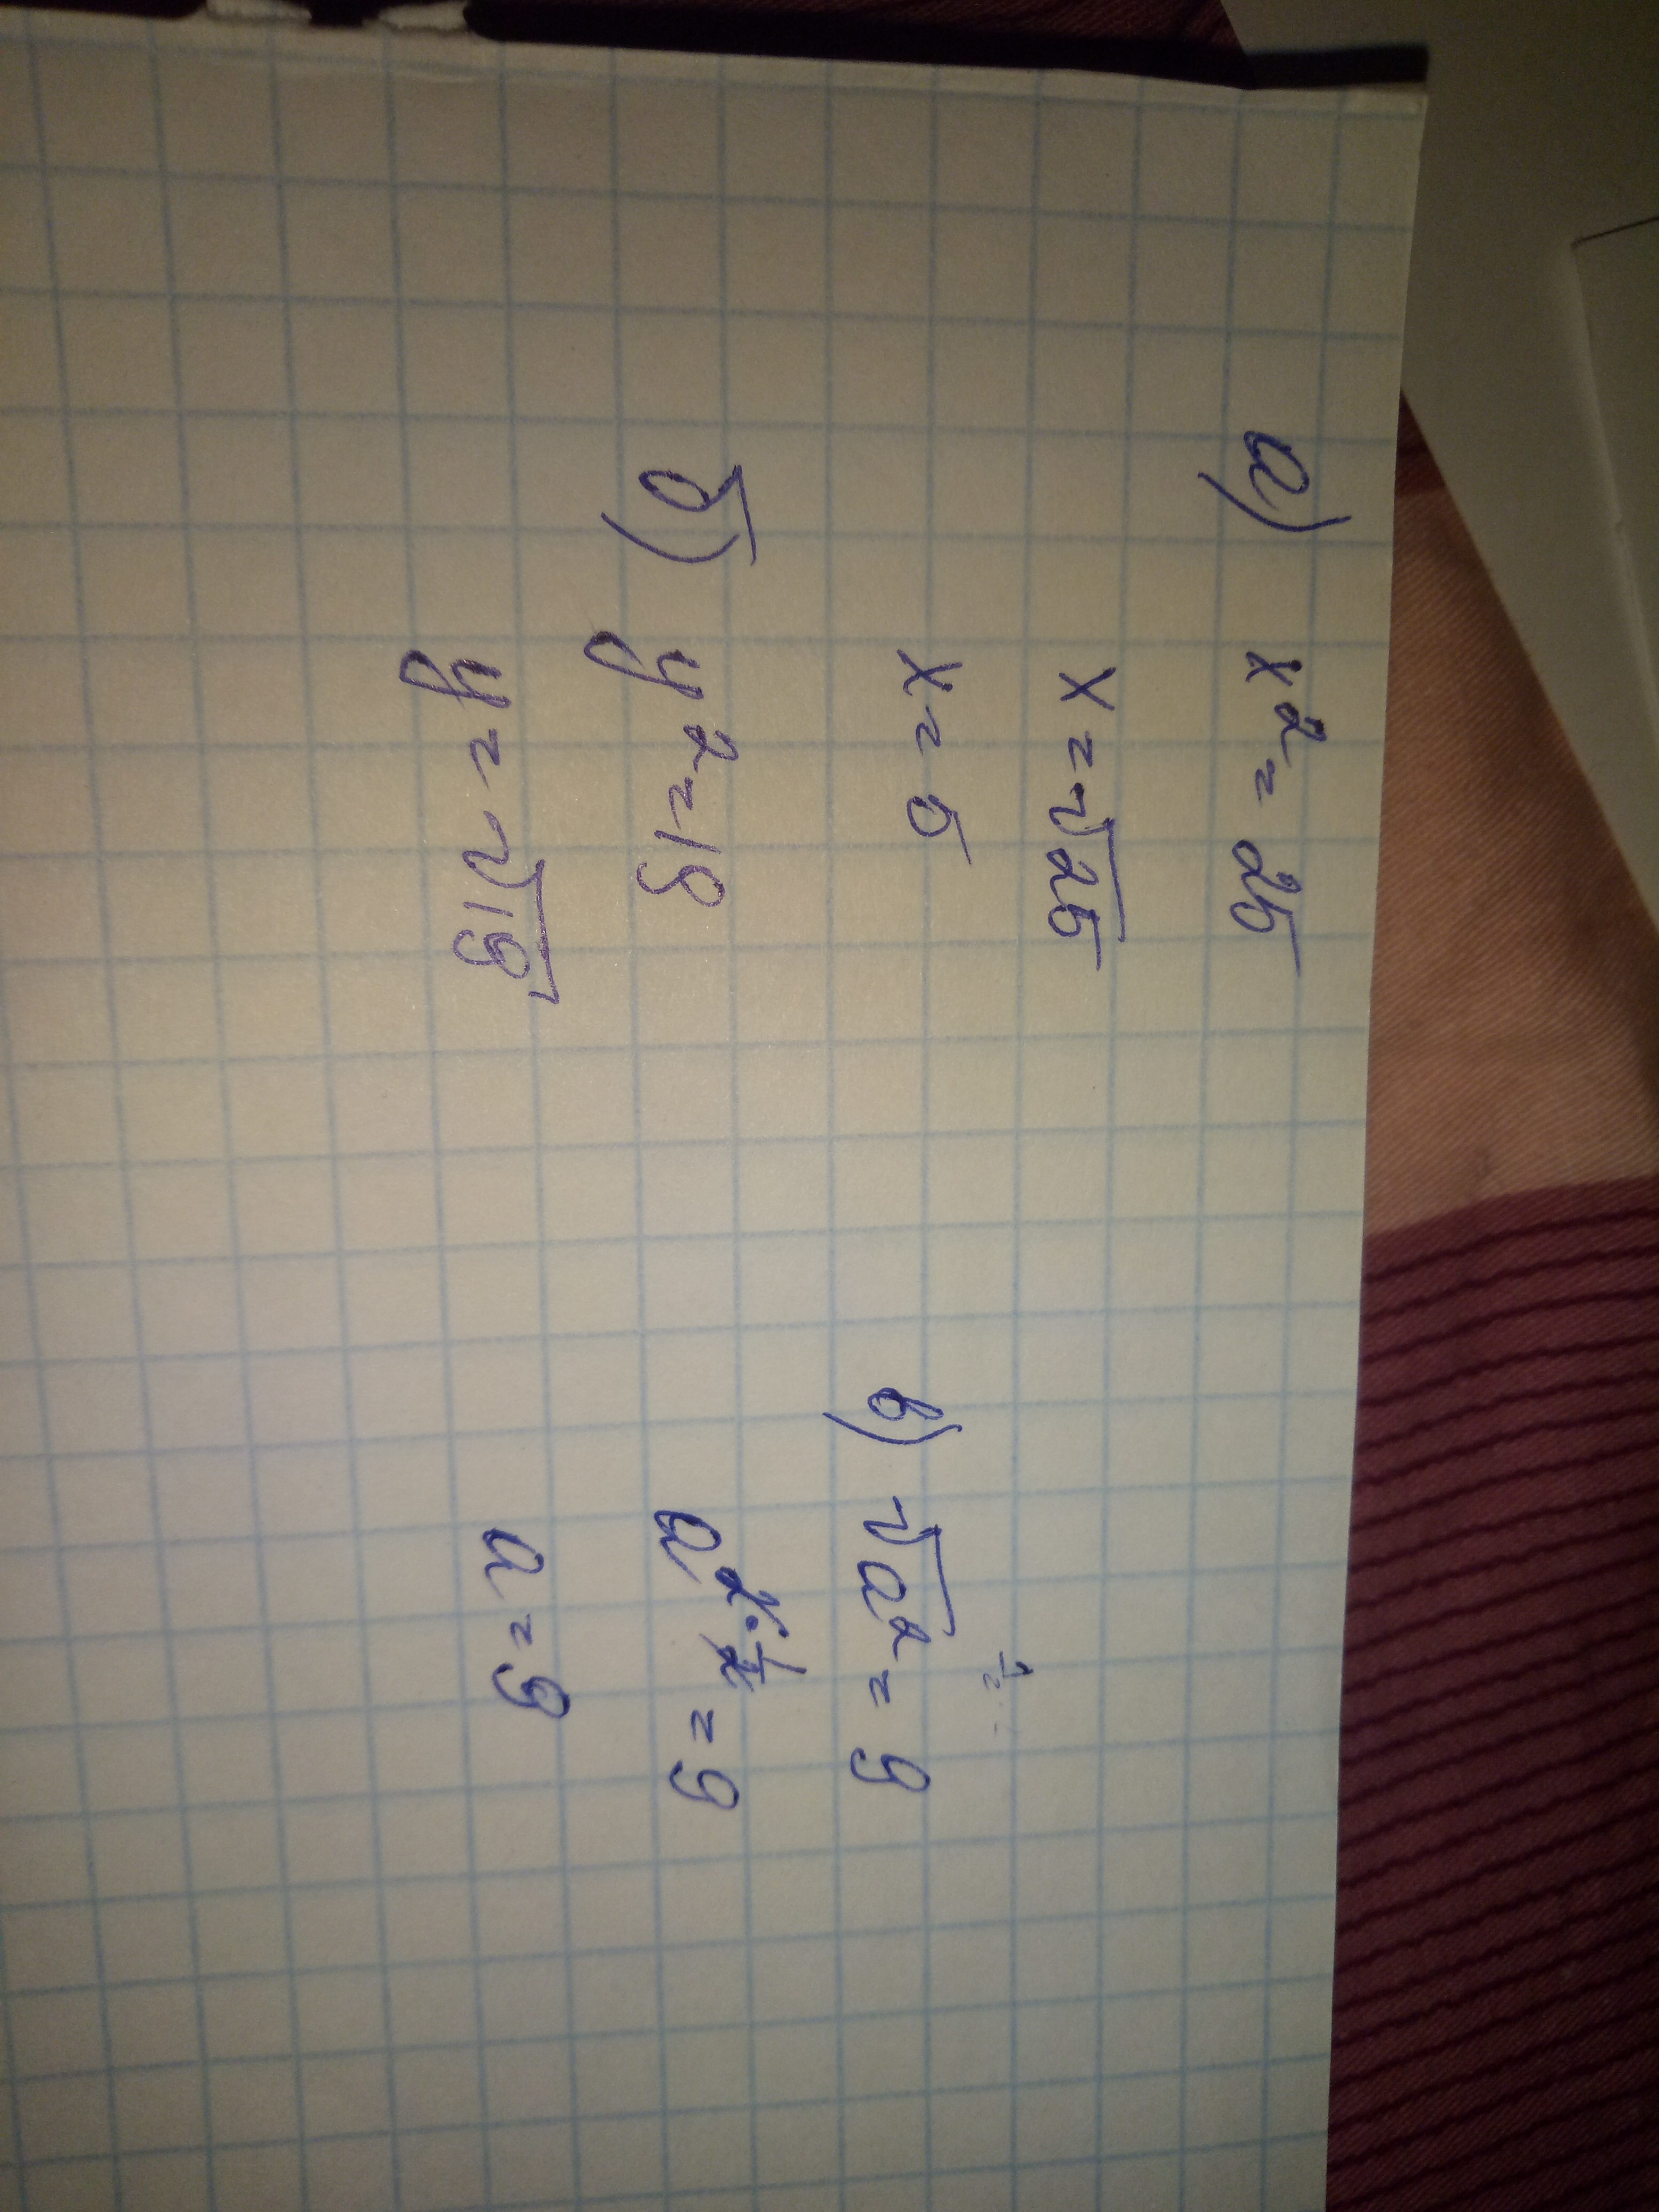 а) x² = 25
x = √25
x = 5
б) y² = 19
y = √19
в) √a² = 9
a^(2·1/2) = 9
a = 9